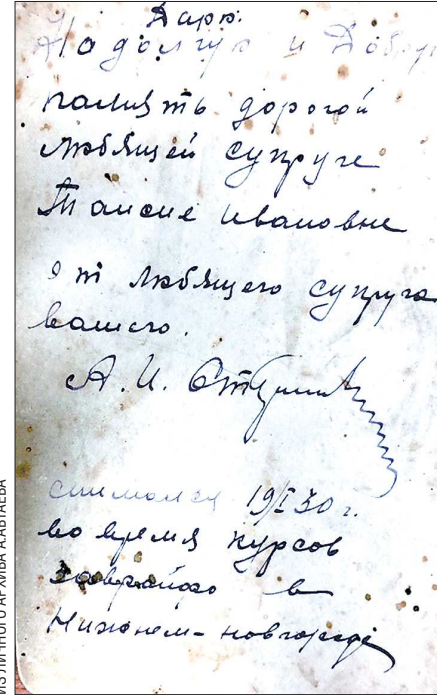 Дарю.
На долгую и добрую
память дорогой
любящей супруге
Таисие Ивановне
от любящего супруга
вашего.
А. И.
снимался 19/I 30 г.
во время курсов
в
Нижнем-Новгороде
ИЗ ЛИЧНОГО АРХИВА А.АВТАЕВА